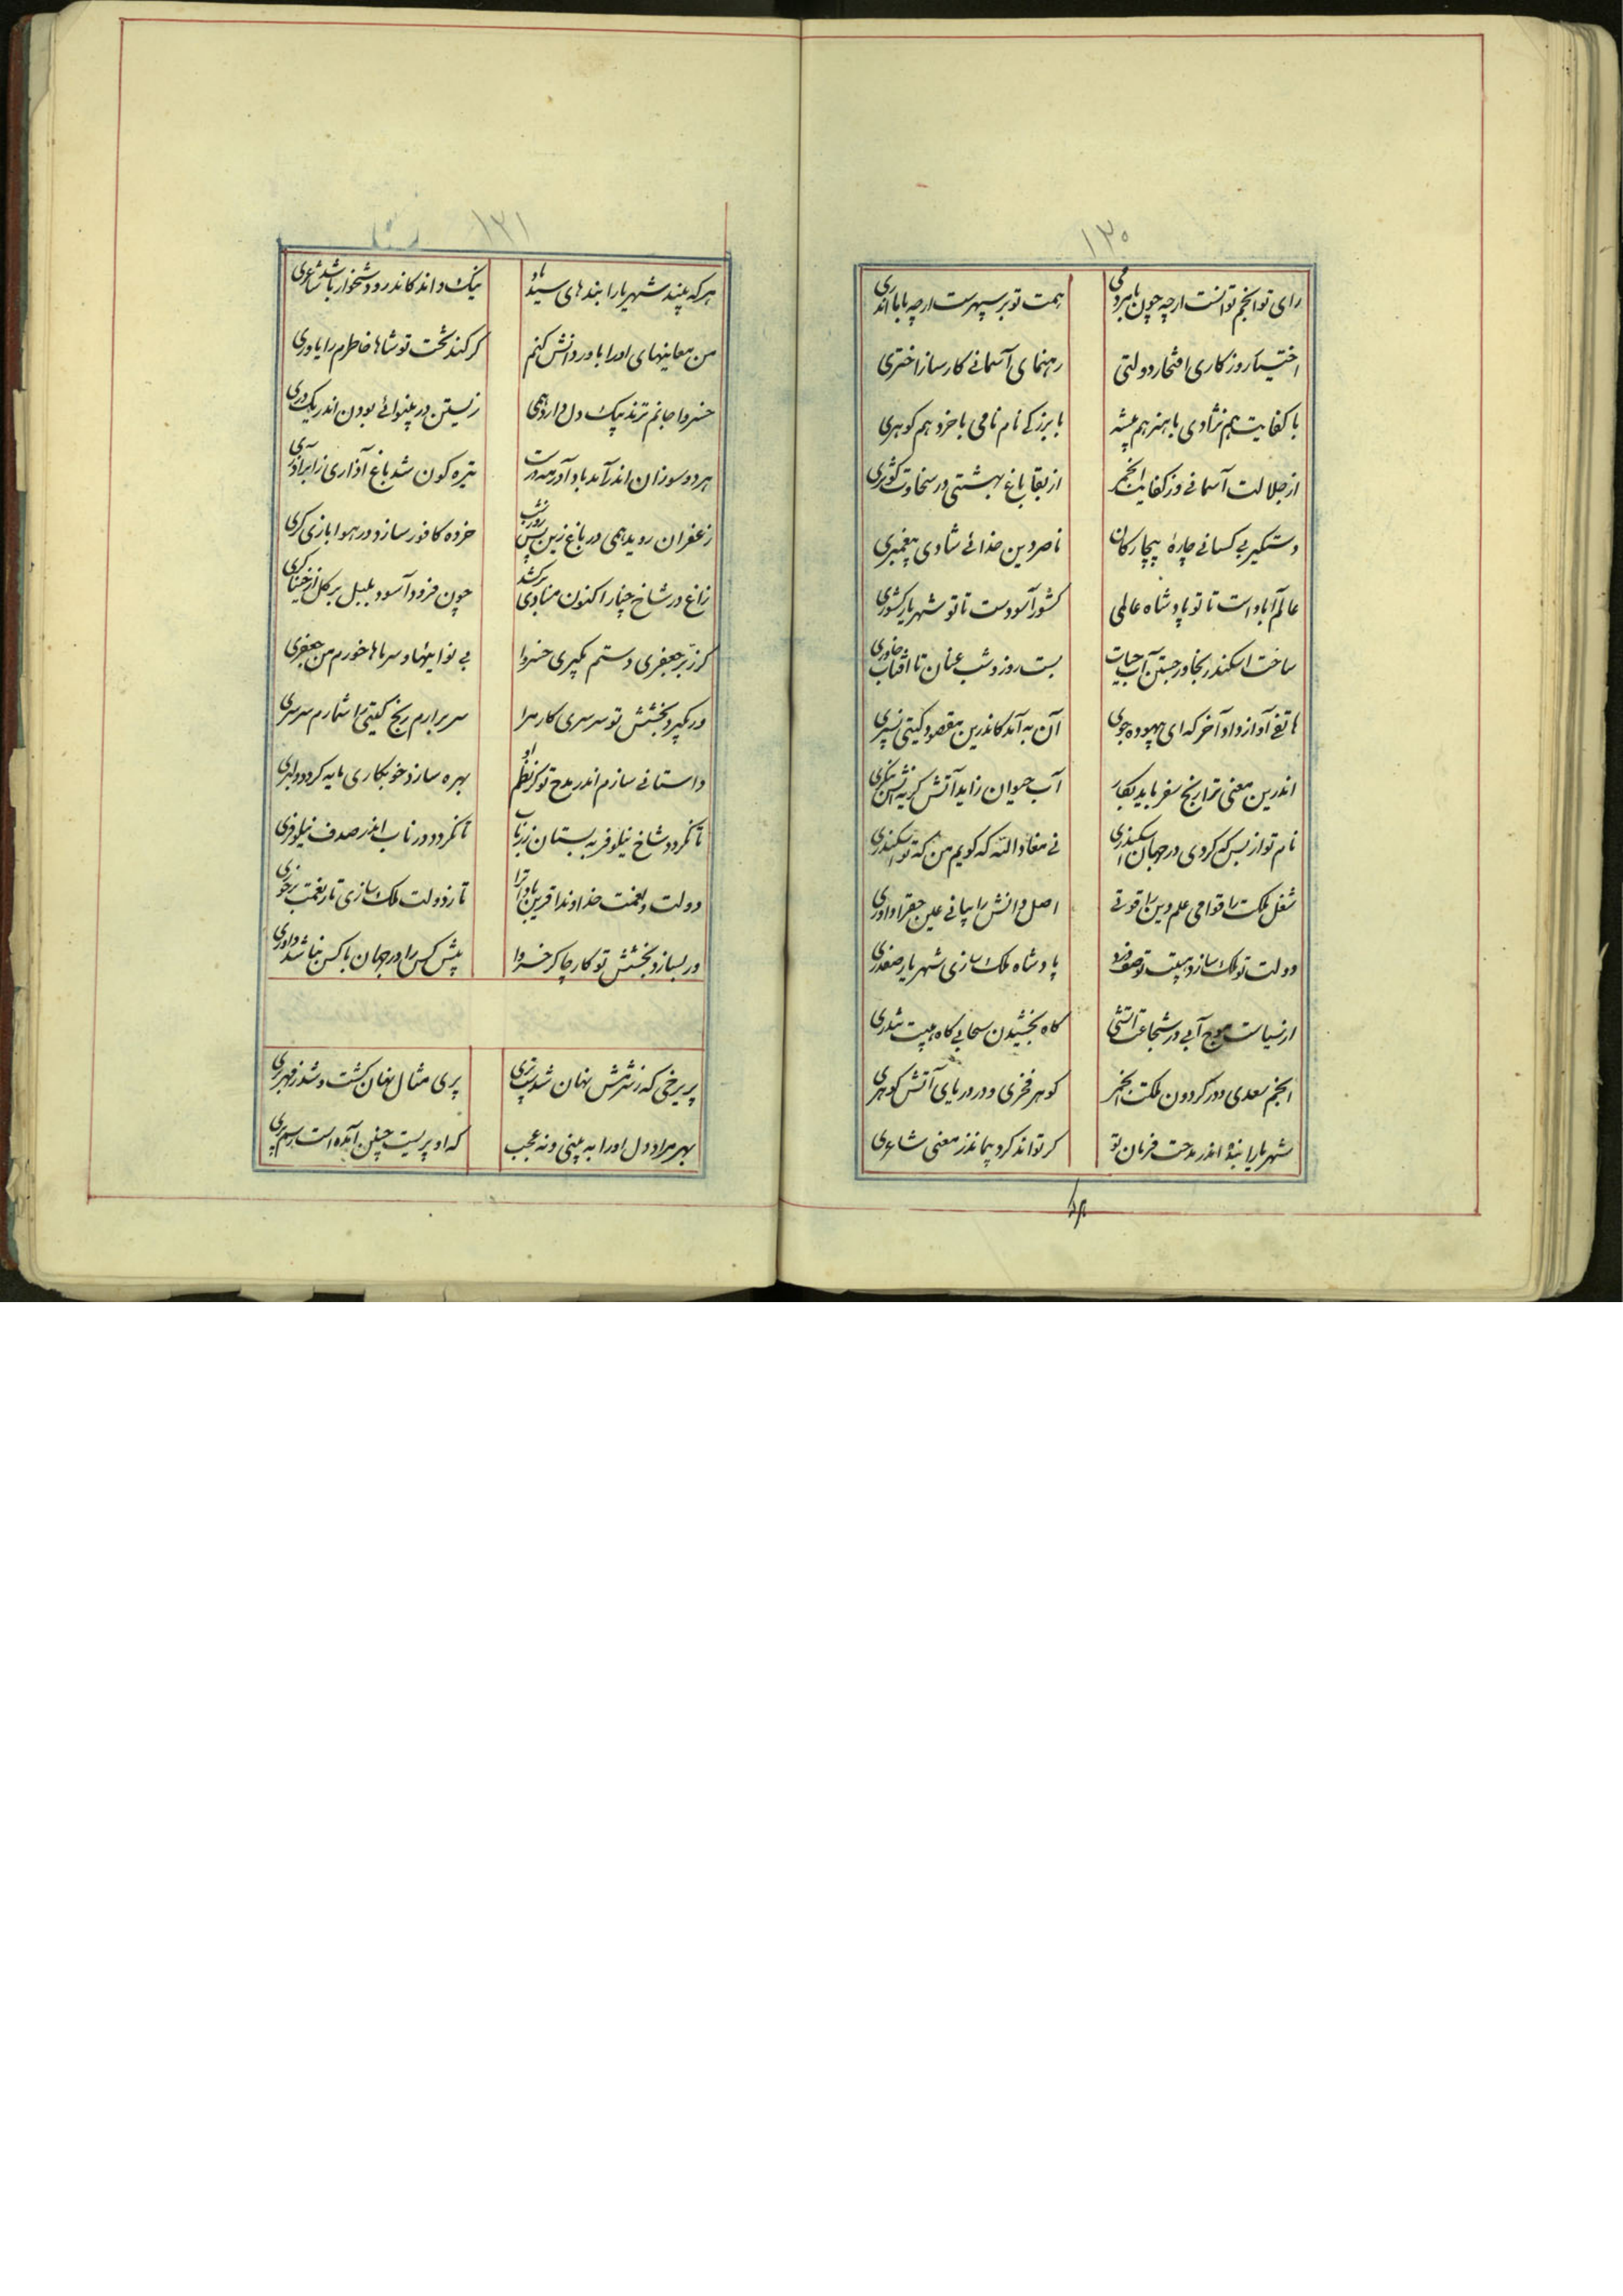 ۱۳۰
رای تو انجم توانست ارچه چون با مردمی
همت تو بر سپهرست ارچه با ما اندری
اختیار روزکاری افتخار دولتی
رهنمای آسمانے کارساز اختری
با کفایت هم نژادی با هنر هم پیشه
با بزرکے نام نامی با خرد هم کوهری
از جلالت آسمانے وز کفایت انجمی
از بقا باغ بهشتی در سخاوت کوثری
دستکیر بی کسانے چارهٔ بیچارکان
ناصر دین خدائے شادی پیغمبری
عالم آباد است تا تو پادشاه عالمی
کشور آسودست تا تو شهریار کشوری
ساخت اسکندر بخاور جستن آب حیات
بست روز و شب عنان تا آفتاب خاوری
هاتفے آواز داد آخر که ای بیهوده جوی
آن به آمد کاندرین مقصود کیتی نسپری
اندرین معنی ترا رنج سفر باید بکار
آب حیوان زاید آتش کر به آتش بنکری
نام تو از بس که کردی در جهان اسکندری
نے معاذ الله که کویم من که تو اسکندری
شغل ملکت را قوامی علم دین را قوتے
اصل دانش را بیانے عین حق را داوری
دولت تو ملک سازد هیبت تو صف درد
پادشاه ملک سازی شهریار صفدری
از سیاست موج آبی در شجاعت آتشی
کاه بخشیدن سحابی کاه هیبت تندری
انجم سعدی و در کردون ملکت انجمی
کوهر فخری و در دریای آتش کوهری
شهریارا بنده اندر مدحت فرمان تو
کر تواند کرد بنماید ز معنی شاعری
۱۳۱
هر که بیند شهریارا بندهای سیندباد
نیک داند کاندرو دشخوار باشد شاعری
من معانیهای او را یاور دانش کنم
کر کند بخت تو شاها خاطرم را یاوری
خسروا جانم نژند نیک دل دارد همی
زیستن در بینوائے بودن اندر یک دری
هر دو سوزان اندر آمد باد آذر مه درست
تیره کون شد باغ آذاری ز ابر آذری
زعفران روید همی در باغ زین پس روز و شب
خرده کافور سازد در هوا بازی کری
زاغ در شاخ چنار اکنون منادی برکشد
چون فرود آسود بلبل بر کل از خنیاکری
کر زبر جعفری دستم نکیری خسروا
بی نوائیها و سرماها خورم من جعفری
ور نکیرد بخشش تو سرسری کار مرا
سر برارم رنج کیتی را شمارم سرسری
داستانے سازم اندر مدح تو کز نظم او
بهره سازد خوبکاری مایه کردد دلبری
تا نکردد شاخ نیلوفر به بستان زر ناب
تا نکردد در ناب اندر صدف نیلوفری
دولت و نعمت خداوندا قرین بادا ترا
تا ز دولت ملک سازی تا ز نعمت برخوری
ور بسازد بخشش تو کار چاکر خسروا
پیش کس را در جهان با کس نباشد داوری
پریرخی که ز شرمش نهان شدست پری
پری مثال نهان کشت و شد ز مهر بری
بهر مراد دل او را به بینی و نه عجب
که او پریست چنین آمده است رسم پری